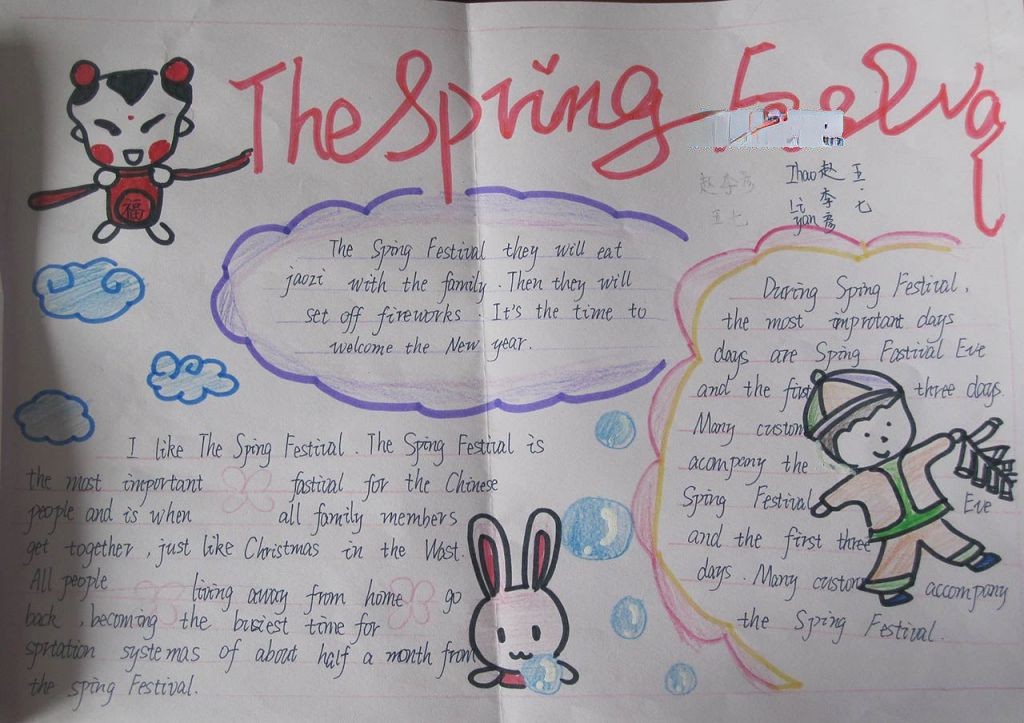 The Spring Festival
赵李彦
王七
Zhao赵 王
Li 李 七
yan 彦
福
The Sping Festival they will eat
jaozi with the family. Then they will
set off fireworks. It's the time to
welcome the New year.
During Sping Festival,
the most improtant days
days are Sping Fastival Eve
and the first three days.
Many custom
acompany the
Sping Festival Eve
and the first three
days. Many custom accompany
the Sping Festival.
I like The Sping Festival. The Sping Festival is
the most important fastival for the Chinese
people and is when all family members
get together, just like Christmas in the Wast.
All people living away from home go
back, becoming the busiest time for
sprtation systemas of about half a month from
the sping Festival.